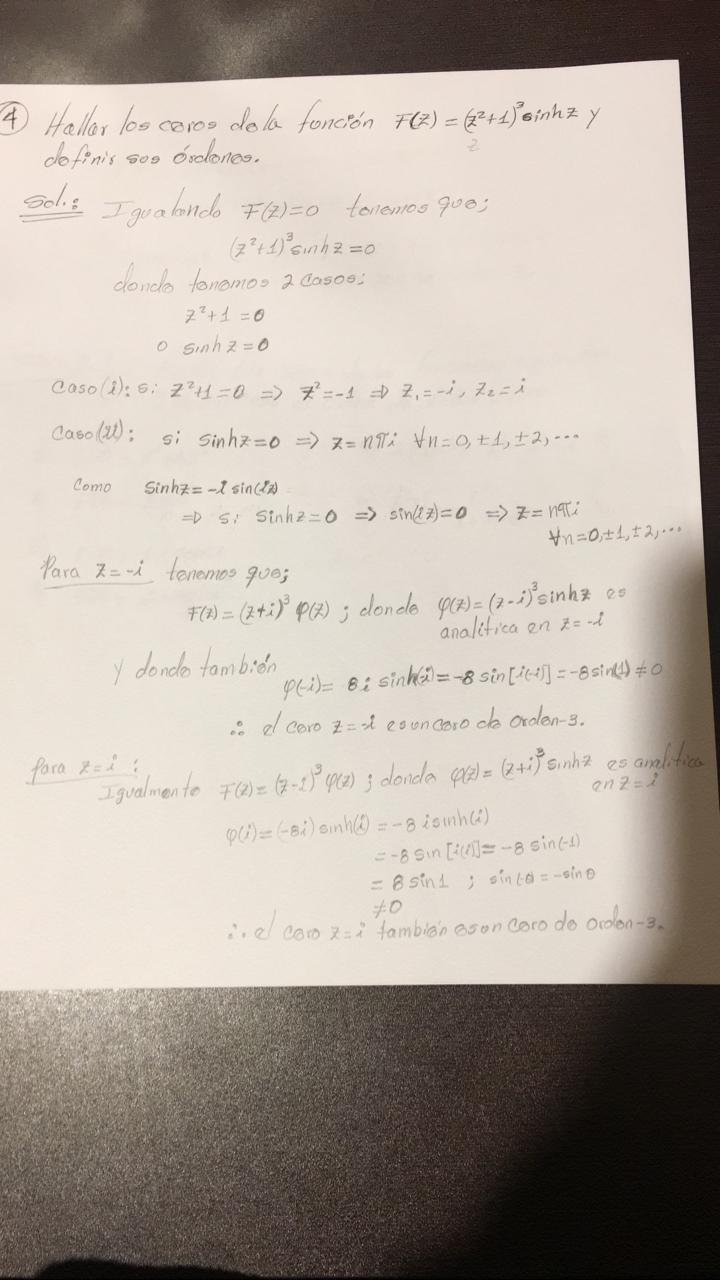 ④ Hallar los ceros de la función F(z) = (z²+1)³ sinh z y
z
definir sus órdenes.
Sol.: Igualando F(z)=0 tenemos que;
(z²+1)³ sinh z = 0
donde tenemos 2 casos:
z²+1 = 0
o sinh z = 0
Caso(i): si z²+1=0 => z²=-1 => z₁=-i, z₂=i
Caso(ii): si sinh z=0 => z=nπi ∀n=0,±1,±2,...
Como sinh z=-i sin(iz)
=> si sinh z=0 => sin(iz)=0 => z=nπi
∀n=0,±1,±2,...
Para z=-i tenemos que;
F(z)=(z+i)³ φ(z) ; donde φ(z)=(z-i)³ sinh z es
analítica en z=-i
y donde también
φ(-i)= 8i sinh(-i)=-8 sin[i(-i)]=-8 sin(1) ≠0
∴ el cero z=-i es un cero de orden-3.
Para z=i :
Igualmente F(z)=(z-i)³ φ(z) ; donde φ(z)=(z+i)³ sinh z es analítica
en z=i
φ(i)=(-8i) sinh(i) = -8 i sinh(i)
= -8 sin[i(i)]= -8 sin(-1)
= 8 sin 1 ; sin(-θ = -sin θ
≠0
∴ el cero z=i también es un cero de orden-3.